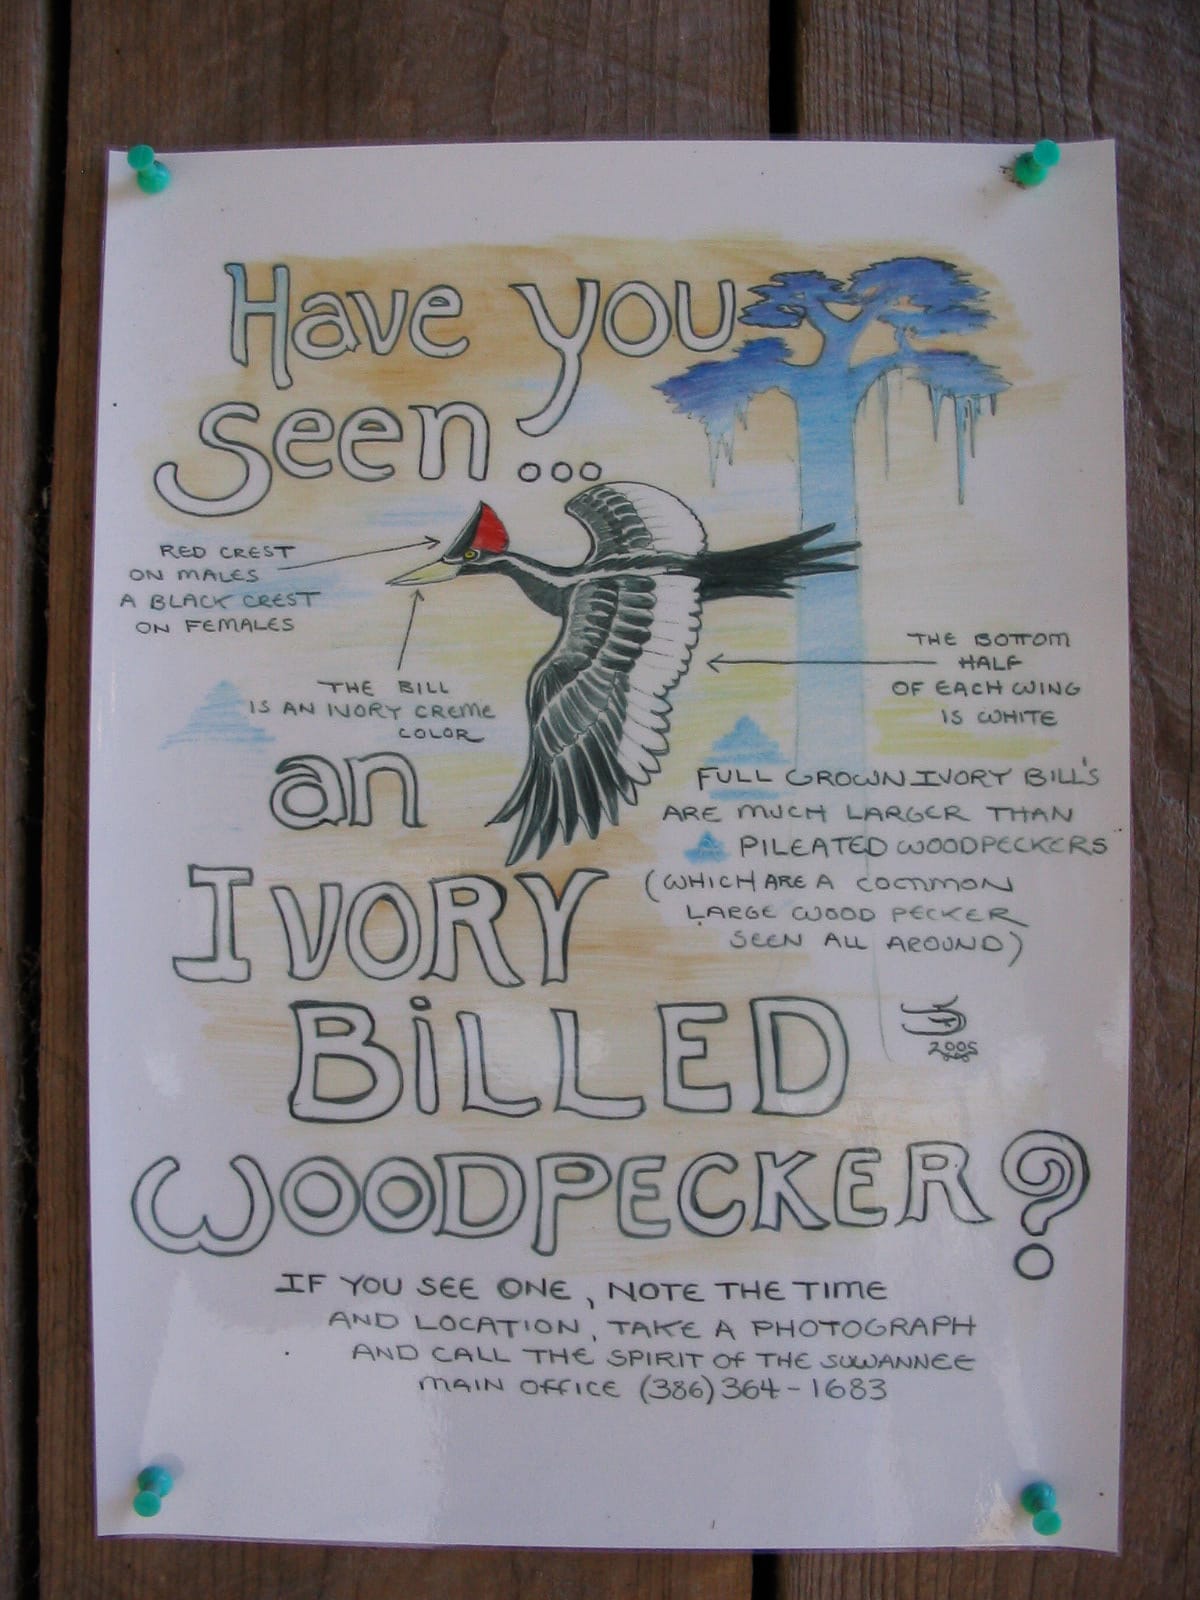 Have you
Seen...
RED CREST
ON MALES
A BLACK CREST
ON FEMALES
THE BILL
IS AN IVORY CREME
COLOR
THE BOTTOM
HALF
OF EACH WING
IS WHITE
FULL GROWN IVORY BILL'S
ARE MUCH LARGER THAN
PILEATED WOODPECKERS
(WHICH ARE A COMMON
LARGE WOOD PECKER
SEEN ALL AROUND)
an
IVORY
BiLLED
WOODPECKER?
2005
IF YOU SEE ONE, NOTE THE TIME
AND LOCATION, TAKE A PHOTOGRAPH
AND CALL THE SPIRIT OF THE SUWANNEE
MAIN OFFICE (386) 364-1683